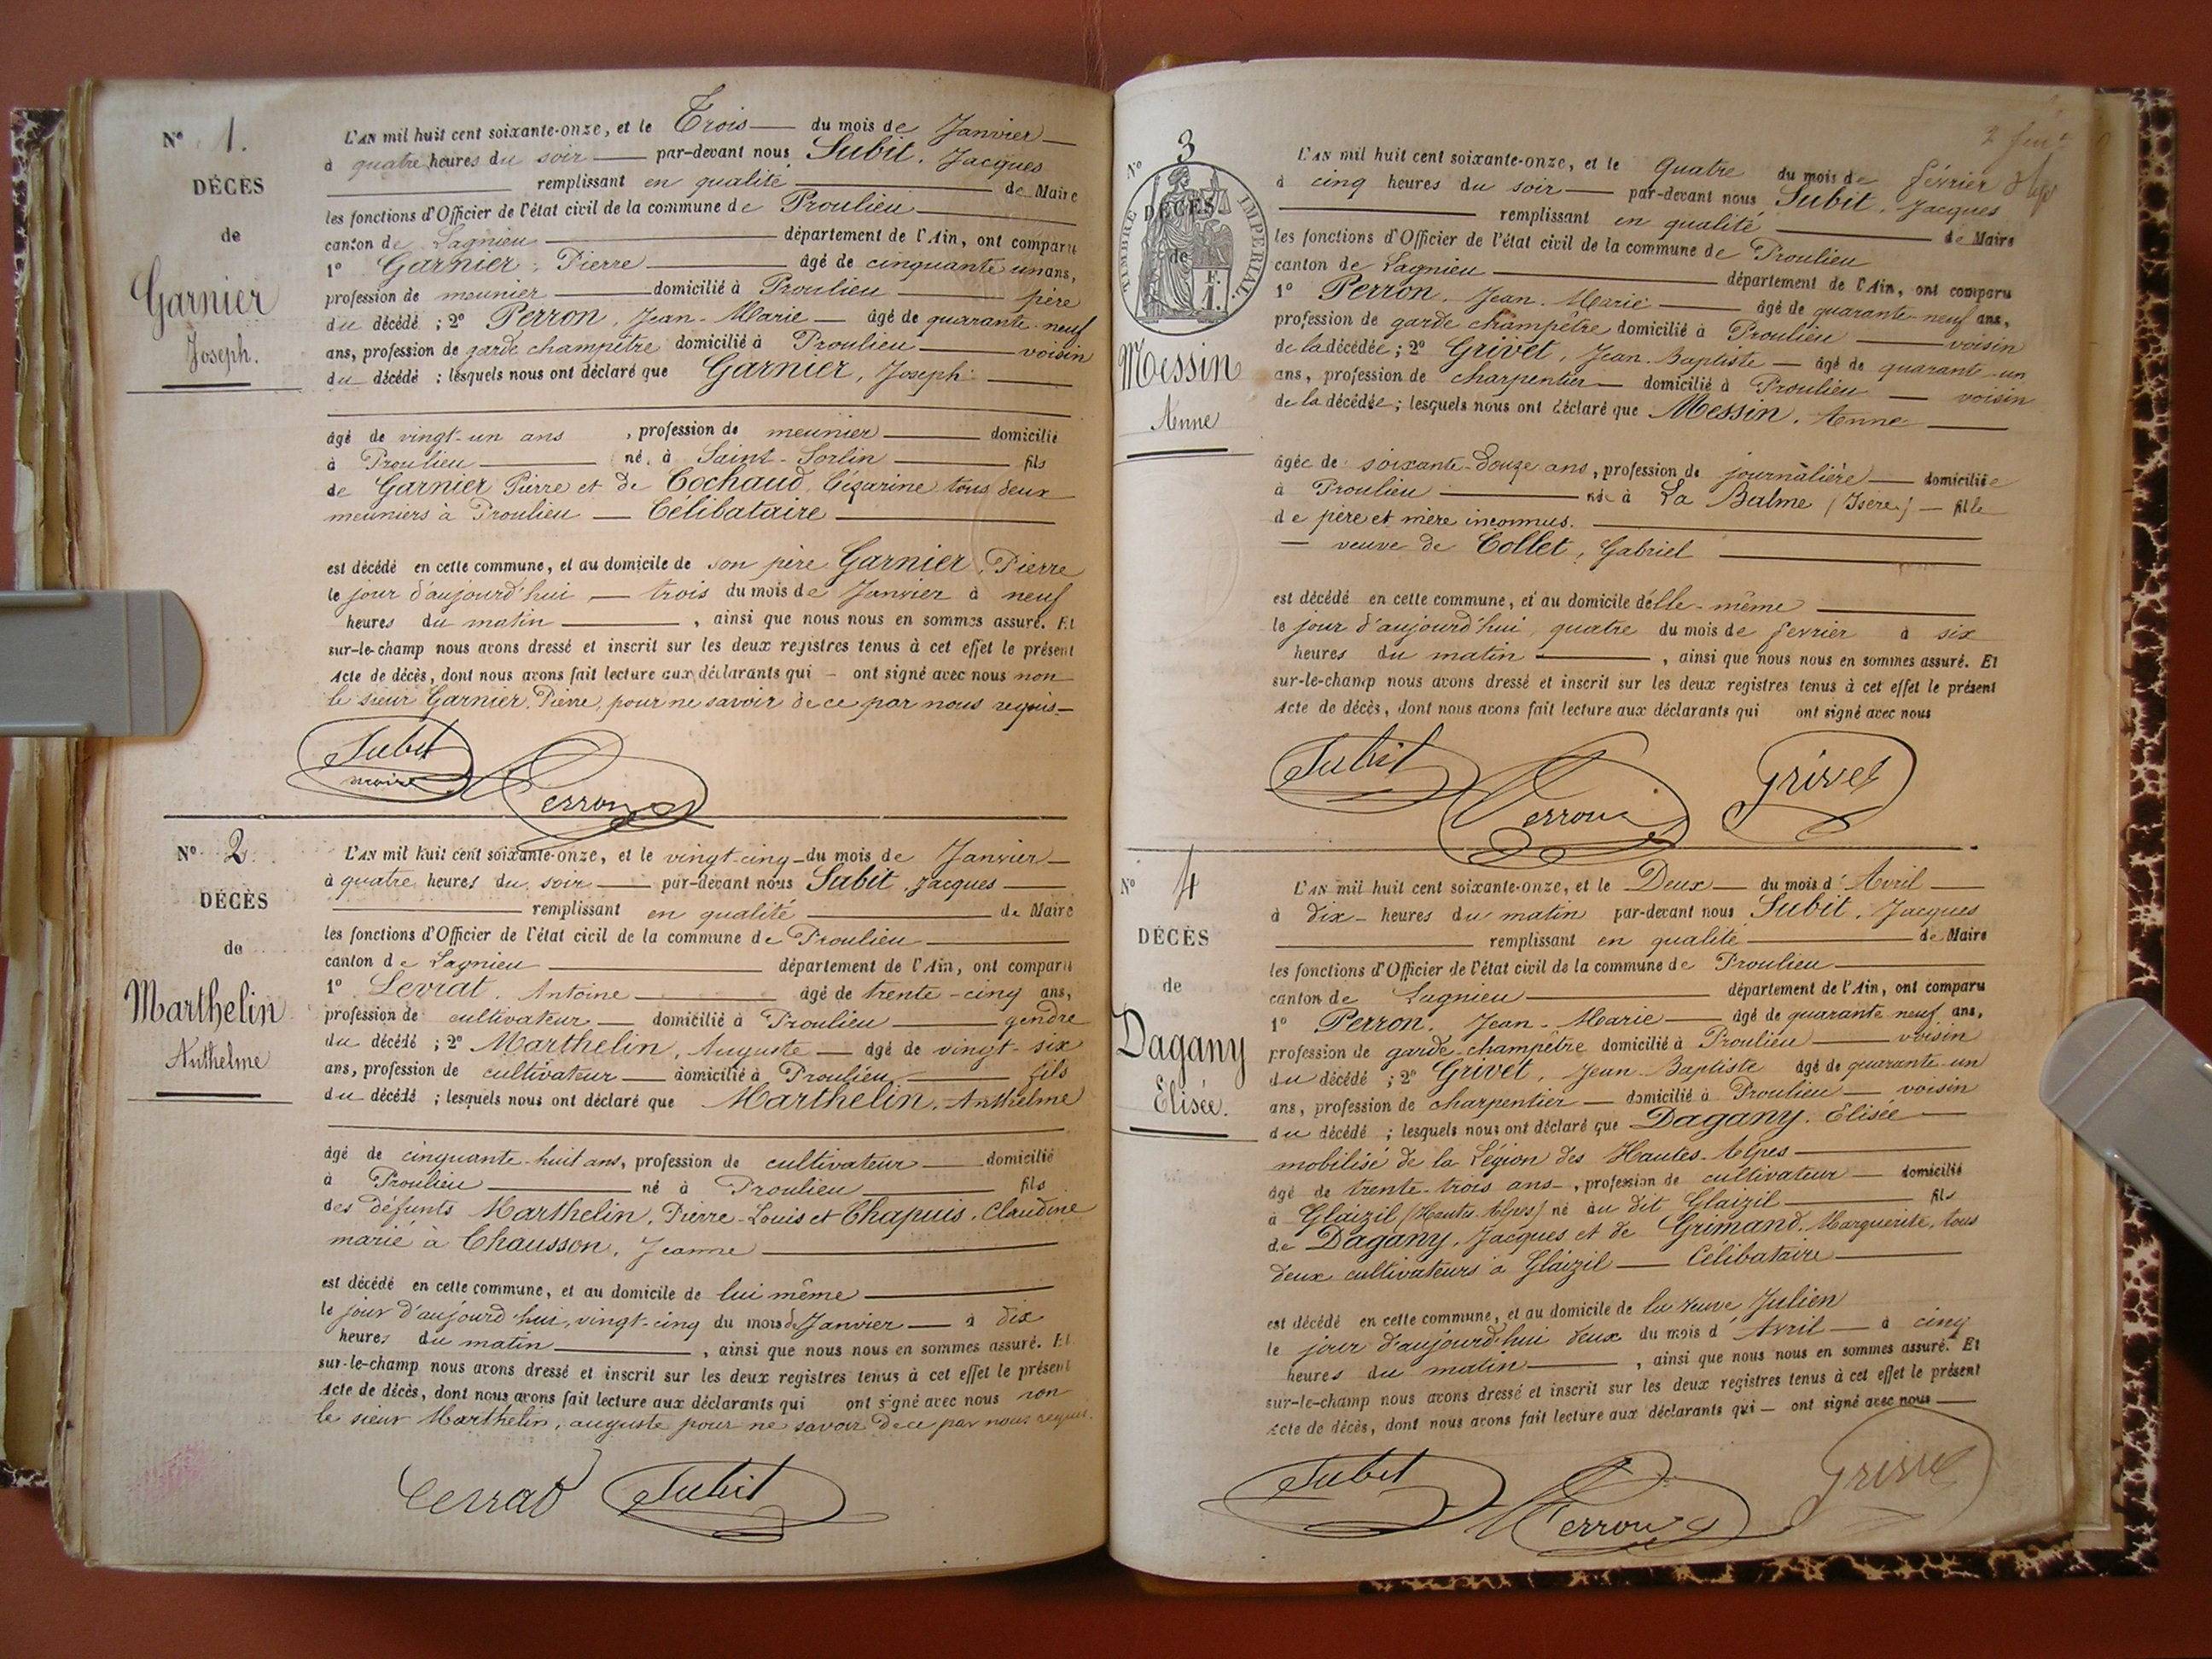 N° 1.
DÉCÈS
de
Garnier
Joseph.
L'AN mil huit cent soixante-onze, et le Trois du mois de Janvier
à quatre heures du soir par-devant nous Subit, Jacques
remplissant en qualité de Maire
les fonctions d'Officier de l'état civil de la commune de Proulieu
canton de Lagnieu département de l'Ain, ont comparu
1° Garnier, Pierre âgé de cinquante un ans,
profession de meunier domicilié à Proulieu père
du décédé ; 2° Perron, Jean-Marie âgé de quarante-neuf
ans, profession de garde champêtre domicilié à Proulieu voisin
du décédé ; lesquels nous ont déclaré que Garnier, Joseph
âgé de vingt-un ans , profession de meunier domicilié
à Proulieu né à Saint-Sorlin fils
de Garnier Pierre et de Cochaud, Cézarine tous deux
meuniers à Proulieu — Célibataire
est décédé en cette commune, et au domicile de son père Garnier, Pierre
le jour d'aujourd'hui — trois du mois de Janvier à neuf
heures du matin , ainsi que nous nous en sommes assuré. Et
sur-le-champ nous avons dressé et inscrit sur les deux registres tenus à cet effet le présent
Acte de décès, dont nous avons fait lecture aux déclarants qui — ont signé avec nous non
le sieur Garnier, Pierre, pour ne savoir de ce par nous requis
Subit
maire
Perron
N° 2.
DÉCÈS
de
Marthelin
Anthelme
L'AN mil huit cent soixante-onze, et le vingt-cinq du mois de Janvier
à quatre heures du soir par-devant nous Subit, Jacques
remplissant en qualité de Maire
les fonctions d'Officier de l'état civil de la commune de Proulieu
canton de Lagnieu département de l'Ain, ont comparu
1° Levrat, Antoine âgé de trente-cinq ans,
profession de cultivateur domicilié à Proulieu gendre
du décédé ; 2° Marthelin, Auguste âgé de vingt-six
ans, profession de cultivateur domicilié à Proulieu fils
du décédé ; lesquels nous ont déclaré que Marthelin, Anthelme
âgé de cinquante-huit ans, profession de cultivateur domicilié
à Proulieu né à Proulieu fils
des défunts Marthelin, Pierre-Louis et Chapuis, Claudine
marié à Chausson, Jeanne
est décédé en cette commune, et au domicile de lui même
le jour d'aujourd'hui, vingt-cinq du mois de Janvier à dix
heures du matin , ainsi que nous nous en sommes assuré. Et
sur-le-champ nous avons dressé et inscrit sur les deux registres tenus à cet effet le présent
Acte de décès, dont nous avons fait lecture aux déclarants qui ont signé avec nous non
le sieur Marthelin, auguste pour ne savoir de ce par nous requis.
Subit
N° 3
TIMBRE IMPÉRIAL
DÉCÈS
de
F.
1.
Messin
Anne
L'AN mil huit cent soixante-onze, et le quatre du mois de février
à cinq heures du soir par-devant nous Subit, Jacques
remplissant en qualité de Maire
les fonctions d'Officier de l'état civil de la commune de Proulieu
canton de Lagnieu département de l'Ain, ont comparu
1° Perron, Jean-Marie âgé de quarante-neuf ans,
profession de garde champêtre domicilié à Proulieu voisin
de la décédée ; 2° Grivet, Jean-Baptiste âgé de quarant-un
ans, profession de charpentier domicilié à Proulieu voisin
de la décédée ; lesquels nous ont déclaré que Messin, Anne
âgée de soixante-douze ans, profession de journalière domiciliée
à Proulieu née à La Balme (Isère) fille
de père et mère inconnus.
— veuve de Collet, Gabriel
est décédé en cette commune, et au domicile d'elle-même
le jour d'aujourd'hui, quatre du mois de fevrier à six
heures du matin , ainsi que nous nous en sommes assuré. Et
sur-le-champ nous avons dressé et inscrit sur les deux registres tenus à cet effet le présent
Acte de décès, dont nous avons fait lecture aux déclarants qui ont signé avec nous
Subit
Perron
Grivet
N° 4
DÉCÈS
de
Dagany
Elisée.
L'AN mil huit cent soixante-onze, et le Deux du mois d'Avril
à dix heures du matin par-devant nous Subit, Jacques
remplissant en qualité de Maire
les fonctions d'Officier de l'état civil de la commune de Proulieu
canton de Lagnieu département de l'Ain, ont comparu
1° Perron, Jean-Marie âgé de quarante neuf ans,
profession de garde-champêtre domicilié à Proulieu voisin
du décédé ; 2° Grivet, Jean-Baptiste âgé de quarante-un
ans, profession de charpentier domicilié à Proulieu voisin
du décédé ; lesquels nous ont déclaré que Dagany, Elisée
mobilisé de la Légion des Hautes-Alpes
âgé de trente-trois ans , profession de cultivateur domicilié
à Glaizil (Hautes-Alpes) né au dit Glaizil fils
de Dagany, Jacques et de Grimand, Marguerite, tous
deux cultivateurs à Glaizil — Celibataire
est décédé en cette commune, et au domicile de la veuve Julien
le jour d'aujourd'hui deux du mois d'Avril à cinq
heures du matin , ainsi que nous nous en sommes assuré. Et
sur-le-champ nous avons dressé et inscrit sur les deux registres tenus à cet effet le présent
Acte de décès, dont nous avons fait lecture aux déclarants qui — ont signé avec nous
Subit
Perron
Grivet